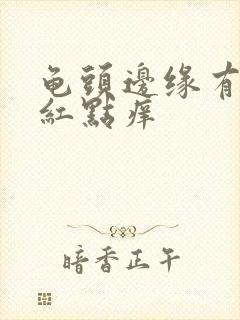 龟頭邊缘有
紅點痒
暗香正午